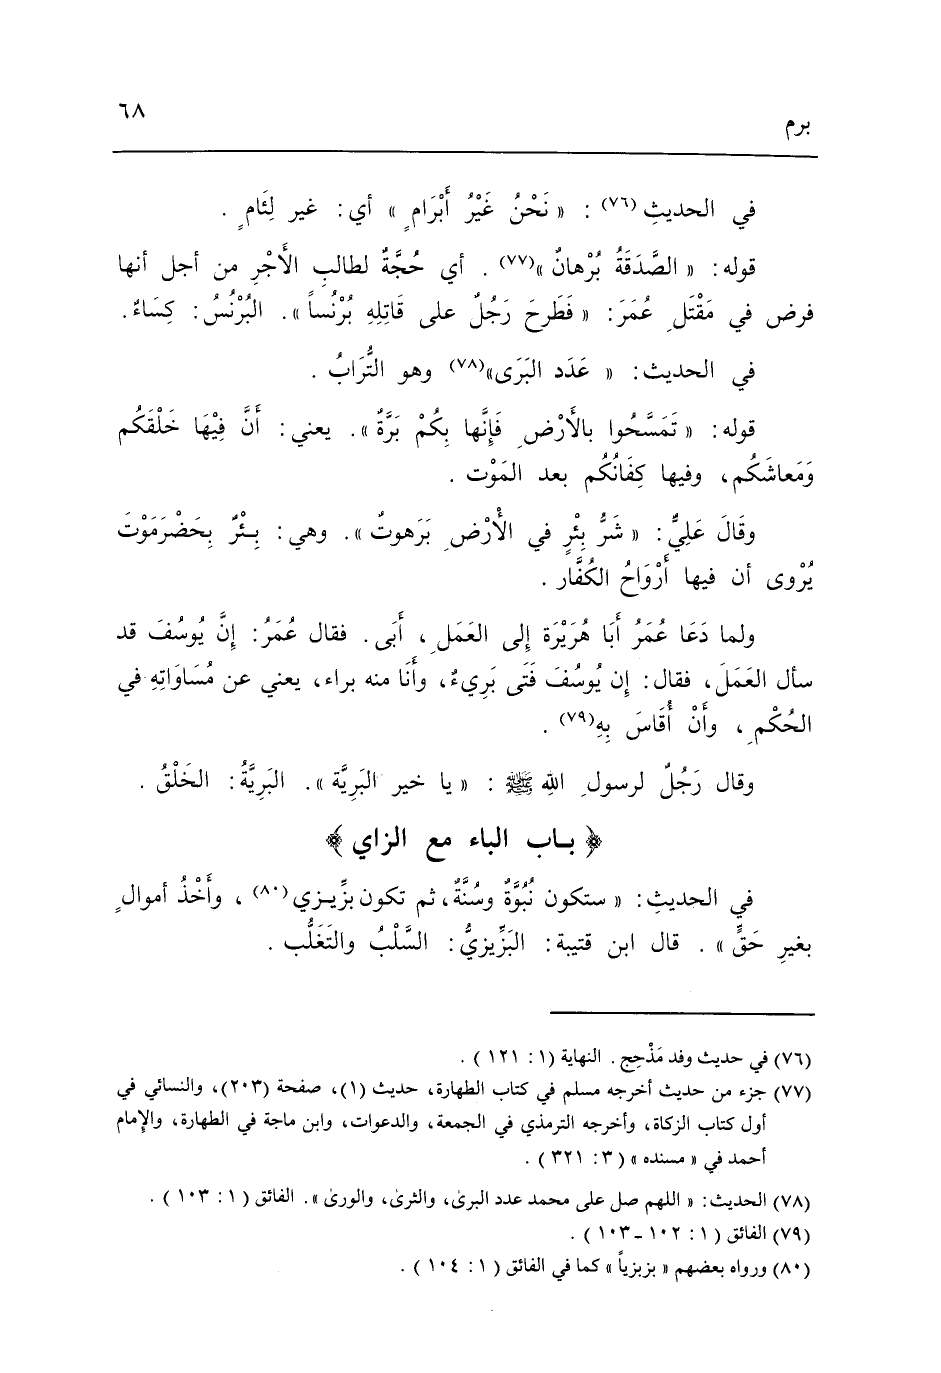 ٦٨
برم
في الحديثِ (٧٦) : « نَحْنُ غَيْرُ أَبْرَامٍ » أي : غير لِئَامٍ .
قوله : « الصَّدَقَةُ بُرْهانٌ »(٧٧) . أي حُجَّةٌ لطالبِ الأَجْرِ من أجل أنها
فرض في مَقْتَلِ عُمَرَ : « فَطَرحَ رَجُلٌ على قَاتِلِهِ بُرْنُساً » . البُرْنُسُ : كِسَاءٌ .
في الحديث : « عَدَد البَرَى»(٧٨) وهو التُّرَابُ .
قوله : « تَمَسَّحُوا بالأَرْضِ فَإِنَّها بِكُمْ بَرَّةٌ » . يعني : أَنَّ فِيْهَا خَلْقَكُم
وَمَعاشَكُم ، وفيها كِفَاتُكُم بعد المَوْت .
وقَالَ عَلِيٌّ : « شَرُّ بِئْرٍ في الأَرْضِ بَرَهوتٌ » . وهي : بِئْرٌ بِحَضْرَمَوْتَ
يُرْوى أن فيها أَرْوَاحُ الكُفَّار .
ولما دَعَا عُمَرُ أَبَا هُرَيْرَة إلى العَمَلِ ، أَبَى . فقال عُمَرُ : إِنَّ يُوسُفَ قد
سأل العَمَلَ ، فقال : إن يُوسُفَ فَتَى بَرِيءٌ ، وأَنَا منه براء ، يعني عن مُسَاوَاتِهِ في
الحُكْمِ ، وأَنْ أُقَاسَ بِهِ(٧٩) .
وقال رَجُلٌ لرسولِ اللهِ ﷺ : « يا خير البَرِيَّة » . البَرِيَّةُ : الخَلْقُ .
﴿ بـاب الباء مع الزاي ﴾
في الحديثِ : « ستكون نُبُوَّةٌ وسُنَّةٌ ، ثم تكون بزِّيـزي(٨٠) ، وأَخْذُ أموالٍ
بغيرِ حَقٍّ » . قال ابن قتيبة : البَزِّيزيُّ : السَّلْبُ والتَغَلُّب .
(٧٦) في حديث وفد مَذْحِج . النهاية (١ : ١٢١ ) .
(٧٧) جزء من حديث أخرجه مسلم في كتاب الطهارة ، حديث (١) ، صفحة (٢٠٣) ، والنسائي في
أول كتاب الزكاة ، وأخرجه الترمذي في الجمعة ، والدعوات ، وابن ماجة في الطهارة ، والإمام
أحمد في « مسنده » (٣ : ٣٢١ ) .
(٧٨) الحديث : « اللهم صل على محمد عدد البرىٰ ، والثرىٰ ، والورىٰ » . الفائق ( ١ : ١٠٣ ) .
(٧٩) الفائق ( ١ : ١٠٢ - ١٠٣ ) .
(٨٠) ورواه بعضهم « بزبزياً » كما في الفائق ( ١ : ١٠٤ ) .